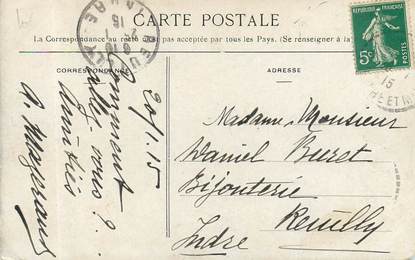 CARTE POSTALE
La Correspondance au recto n'est pas acceptée par tous les Pays. (Se renseigner à la
CORRESPONDANCE
ADRESSE
REPUBLIQUE FRANÇAISE
POSTES
5c
REUILLY
INDRE
15
20/1.15
Comment
allez-vous ?.
Amitiés
Madame Monsieur
Daniel Buret
Bijouterie
Reuilly
Indre